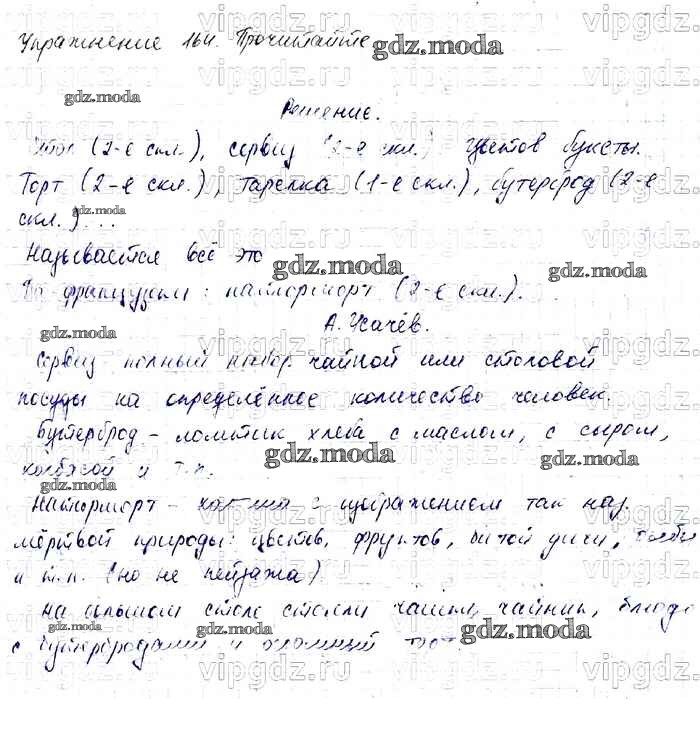 Упражнение 164. Прочитайте
Решение.
Стол (2-е скл.), сервиз (2-е скл.) цветов букеты.
Торт (2-е скл.), тарелка (1-е скл.), бутерброд (2-е
скл.)...
Называется всё это
По-французски: натюрморт (2-е скл.).
А. Усачёв.
Сервиз полный набор чайной или столовой
посуды на определённое количество человек.
Бутерброд - ломтик хлеба с маслом, с сыром,
колбасой и т.п.
Натюрморт - картина с изображением так наз.
мёртвой природы: цветов, фруктов, битой дичи,
и т.п. (но не пейзажа)
На большом столе стояли чашки, чайник, блюдо
с бутербродами и огромный торт.
gdz.moda
vipgdz.com